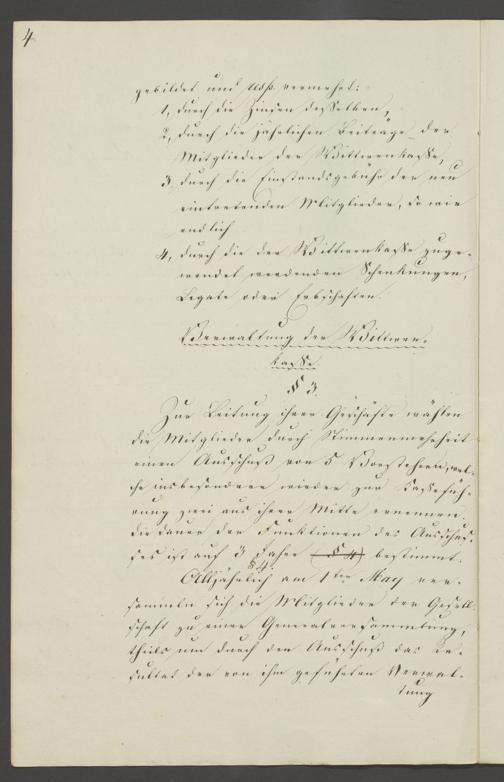 4
gebildet und resp. vermehrt:
1, durch die Zinsen desselben,
2, durch die jährlichen Beiträge der
Mitglieder der Wittwenkasse,
3, durch die Einstandsgebühr der neu
eintretenden Mitglieder, so wie
endlich
4, durch die der Wittwenkasse zuge-
wendet werdenden Schenkungen,
Legate oder Erbschaften.
Verwaltung der Wittwen-
kasse.
§ 3.
Zur Leitung ihrer Geschäfte wählen
die Mitglieder durch Stimmenmehrheit
einen Ausschuß von 5 Vorstehern, wel-
che insbesondere wieder zur Kassefüh-
rung zwei aus ihrer Mitte ernennen.
die Dauer der Funktionen des Ausschus-
ses ist auf 3 Jahre (§ 4) bestimmt.
§ 4.
Alljährlich am 1ten May ver-
sammeln sich die Mitglieder der Gesell-
schaft zu einer Generalversammlung,
theils um durch den Ausschuß das Re-
sultat der von ihm geführten Verwal-
tung